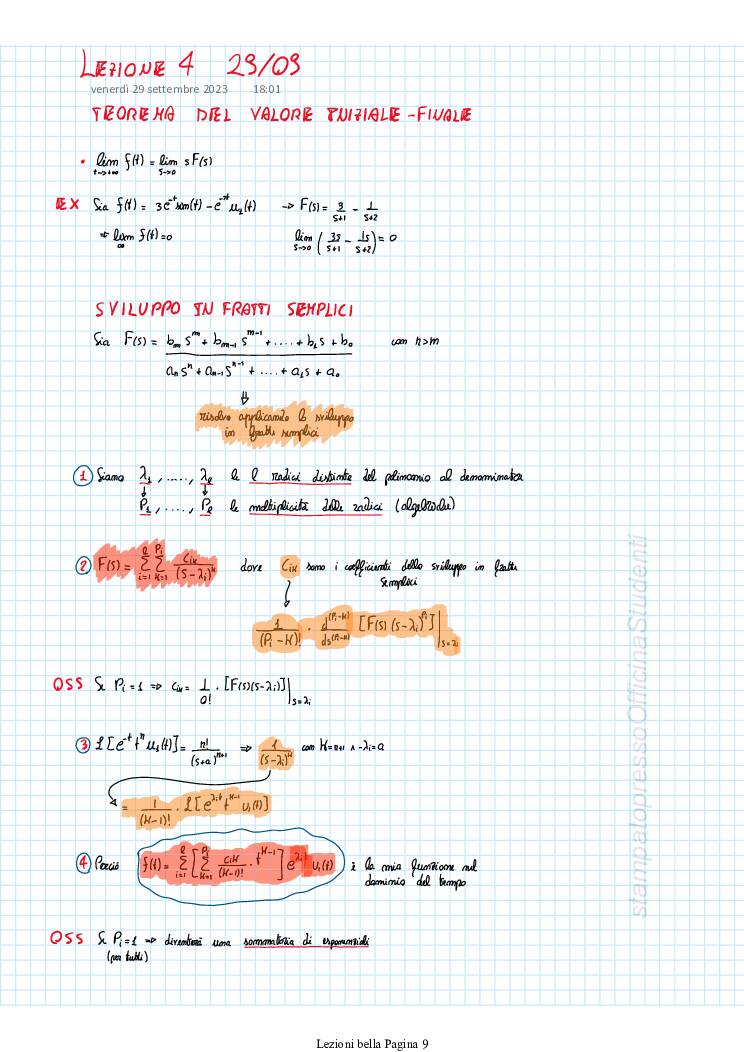 LEZIONE 4 29/09
venerdì 29 settembre 2023 18:01
TEOREMA DEL VALORE INIZIALE-FINALE
• lim f(t) = lim sF(s)
t→+∞ s→0
EX Sia f(t) = 3e^-t sen(t) - e^-2t u_1(t) → F(s) = 3/(s+1) - 1/(s+2)
⇒ lim_∞ f(t) = 0 lim_{s→0} (3s/(s+1) - 1s/(s+2)) = 0
SVILUPPO IN FRATTI SEMPLICI
Sia F(s) = (b_m s^m + b_{m-1} s^{m-1} + .... + b_1 s + b_0) / (a_n s^n + a_{n-1} s^{n-1} + .... + a_1 s + a_0) con n>m
⇓
risolvo applicando lo sviluppo
in fratti semplici
① Siano λ_1, ....., λ_l le l radici distinte del polinomio al denominatore
↓ ↓
P_1, ....., P_l le molteplicità delle radici (algebriche)
② F(s) = Σ_{i=1}^{l} Σ_{K=1}^{P_i} C_{iK}/(s-λ_i)^K dove C_{iK} sono i coefficienti dello sviluppo in fratti
semplici
1/(P_i-K)! · d^{(P_i-K)}/ds^{(P_i-K)} [F(s) (s-λ_i)^{P_i}]|_{s=λ_i}
OSS Se P_i=1 ⇒ C_{iK} = 1/0! · [F(s)(s-λ_i)]|_{s=λ_i}
③ L[e^-t t^n u_1(t)] = n!/(s+a)^{n+1} ⇒ 1/(s-λ_i)^K con K=n+1 ∧ -λ_i=a
= 1/(K-1)! · L[e^{λ_i t} t^{K-1} u_1(t)]
④ Perciò f(t) = Σ_{i=1}^{l} [Σ_{K=1}^{P_i} C_{iK}/(K-1)! · t^{K-1}] e^{λ_i t} u_1(t) è la mia funzione nel
dominio del tempo
OSS Se P_i=1 ⇒ diventerà una sommatoria di esponenziali
(per tutti)
stampatopressoOfficinaStudenti
Lezioni bella Pagina 9